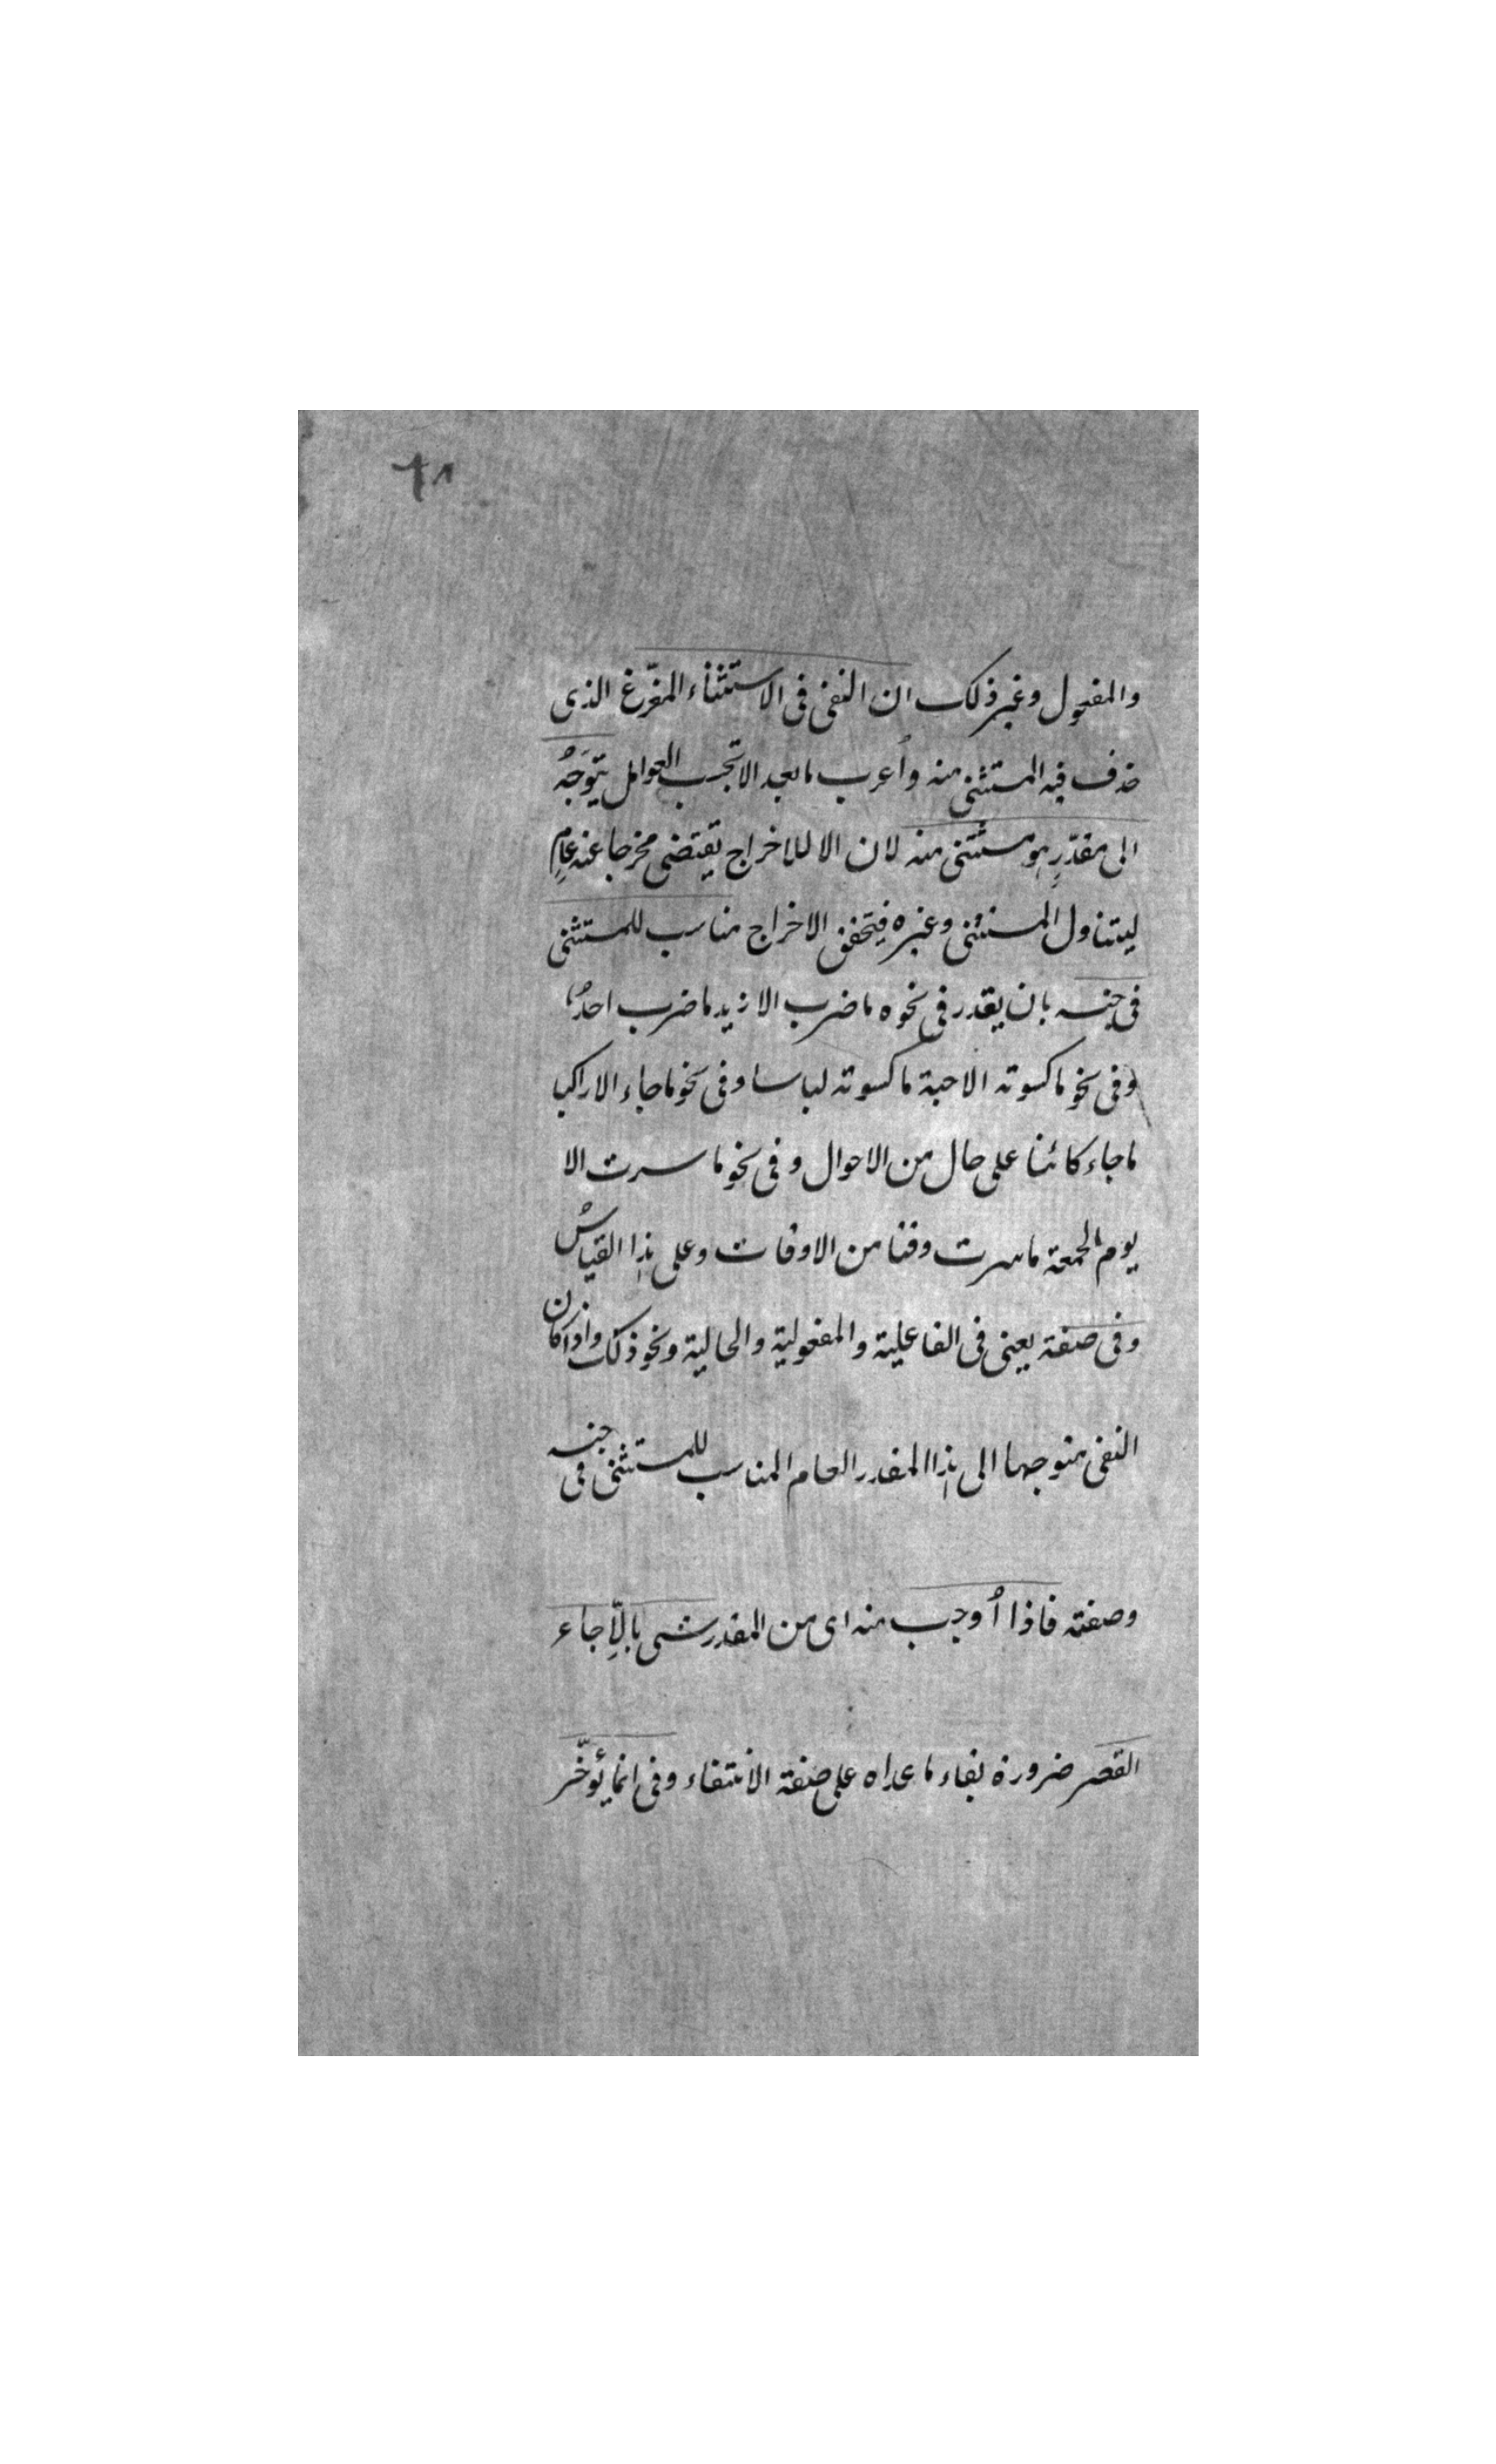 ٦٨
والمفعول وغير ذلك ان النفى فى الاستثناء المفرّغ الذى
حذف فيه المستثنى منه وأعرب ما بعد الا بحسب العوامل يتوَجهُ
الى مقدّرٍ هو مستثنى منه لان الا للاخراج يقتضى مخرجا عنه عامٍ
ليتناول المستثنى وغيره فيتحقق الاخراج مناسب للمستثنى
فى جنسه بان يقدر فى نحوه ما ضرب الا زيد ما ضرب احدٌ
وفى نحو ما كسوته الا جبة ما كسوته لباسا وفى نحو ما جاء الا راكبا
ما جاء كائنا على حال من الاحوال وفى نحو ما سرت الا
يوم الجمعة ما سرت وقتا من الاوقات وعلى هذا القياسُ
وفى صفته يعنى فى الفاعلية والمفعولية والحالية ونحو ذلك واذا كان
النفى متوجها الى هذا المقدر العام المناسب للمستثنى فى جنسه
وصفته فاذا أُوجب منه اى من المقدر شىء بالّا جاء
القصر ضرورة بقاء ما عداه على صفة الانتفاء وفى انما يُؤخّر